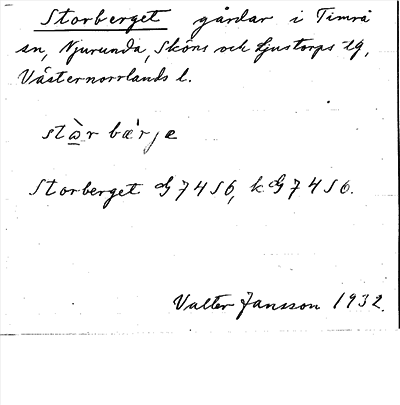 Storberget gårdar i Timrå
sn, Njurunda, Sköns och Ljustorps tg,
Västernorrlands l.
stòr bæ'rje
Storberget G 7456, k. G 7456.
Valter Jansson 1932.